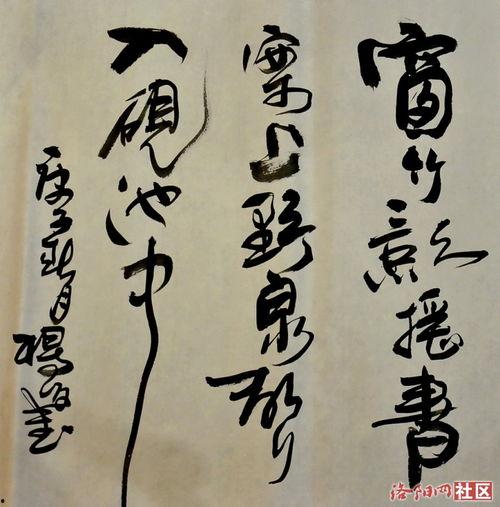 窗竹影摇書
案上野泉聲
入硯池中
庚子秋月楊
洛阳网社区